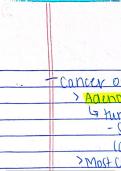 – Cancer o
> Adeno
↳ tum
-
> Most c